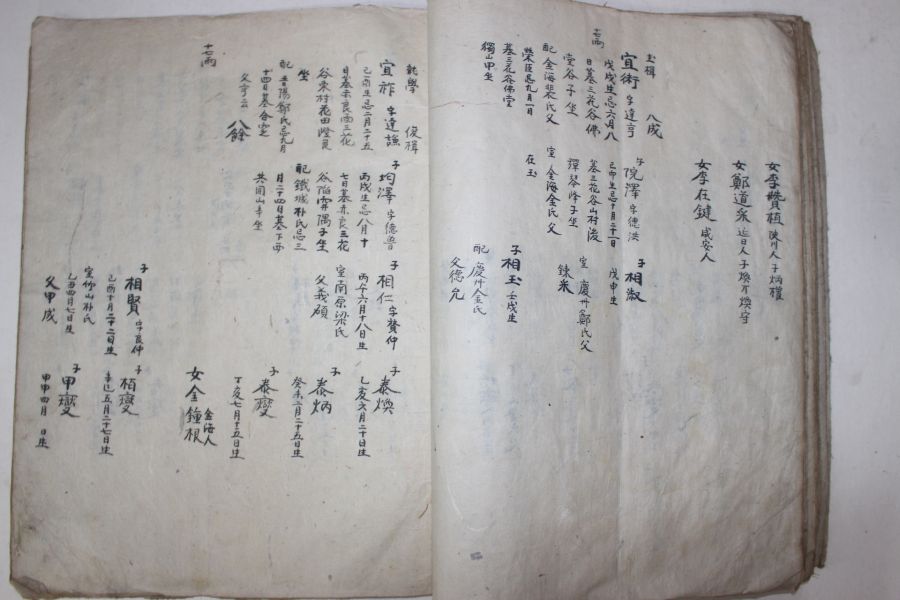 女李贊植 陜川人 子炳權
女鄭道永 延日人 子煥不煥守
女李在鍵 咸安人
玉楫 八成
十七兩
宜術 字達亨
戊戌生忌六月八
日墓三花谷佛
堂谷子坐
配金海裴氏父
榮臣忌九月一日
墓三花谷佛堂
獨山甲坐
子院澤 字德洪
己卯生忌十月二十一日
墓三花谷山村後
彈琴峰子坐
室金海金氏父
在玉
子相淑
戊申生
室慶州鄭氏父
錬來
子相玉 壬戌生
配慶州金氏
父德允
乾學 俊楫
宜祚 字達謙
己酉生忌二月二十五
日墓赤良面三花
谷東村花田嶝艮
坐
配晉陽鄭氏忌九月
十四日墓合窆
父宇云 八餘
十七兩
子均澤 字德普
丙戌生忌八月十
七日墓赤良三花
谷陷穽隅子坐
配鐵城朴氏忌三
月二十四日墓下西
共同山辛坐
子相仁 字贊仲
丙午六月十八日生
室南原梁氏
父義碩
子相賢 字良仲
己酉十月二十二日生
室竹山朴氏
乙丑四月七日生
父甲成
子泰煥
乙亥六月二十日生
子泰炳
癸未二月二十五日生
子泰燮
丁亥七月十五日生
女金鐘根 金海人
子栢燮
辛巳五月二十七日生
子甲燮
甲申四月 日生